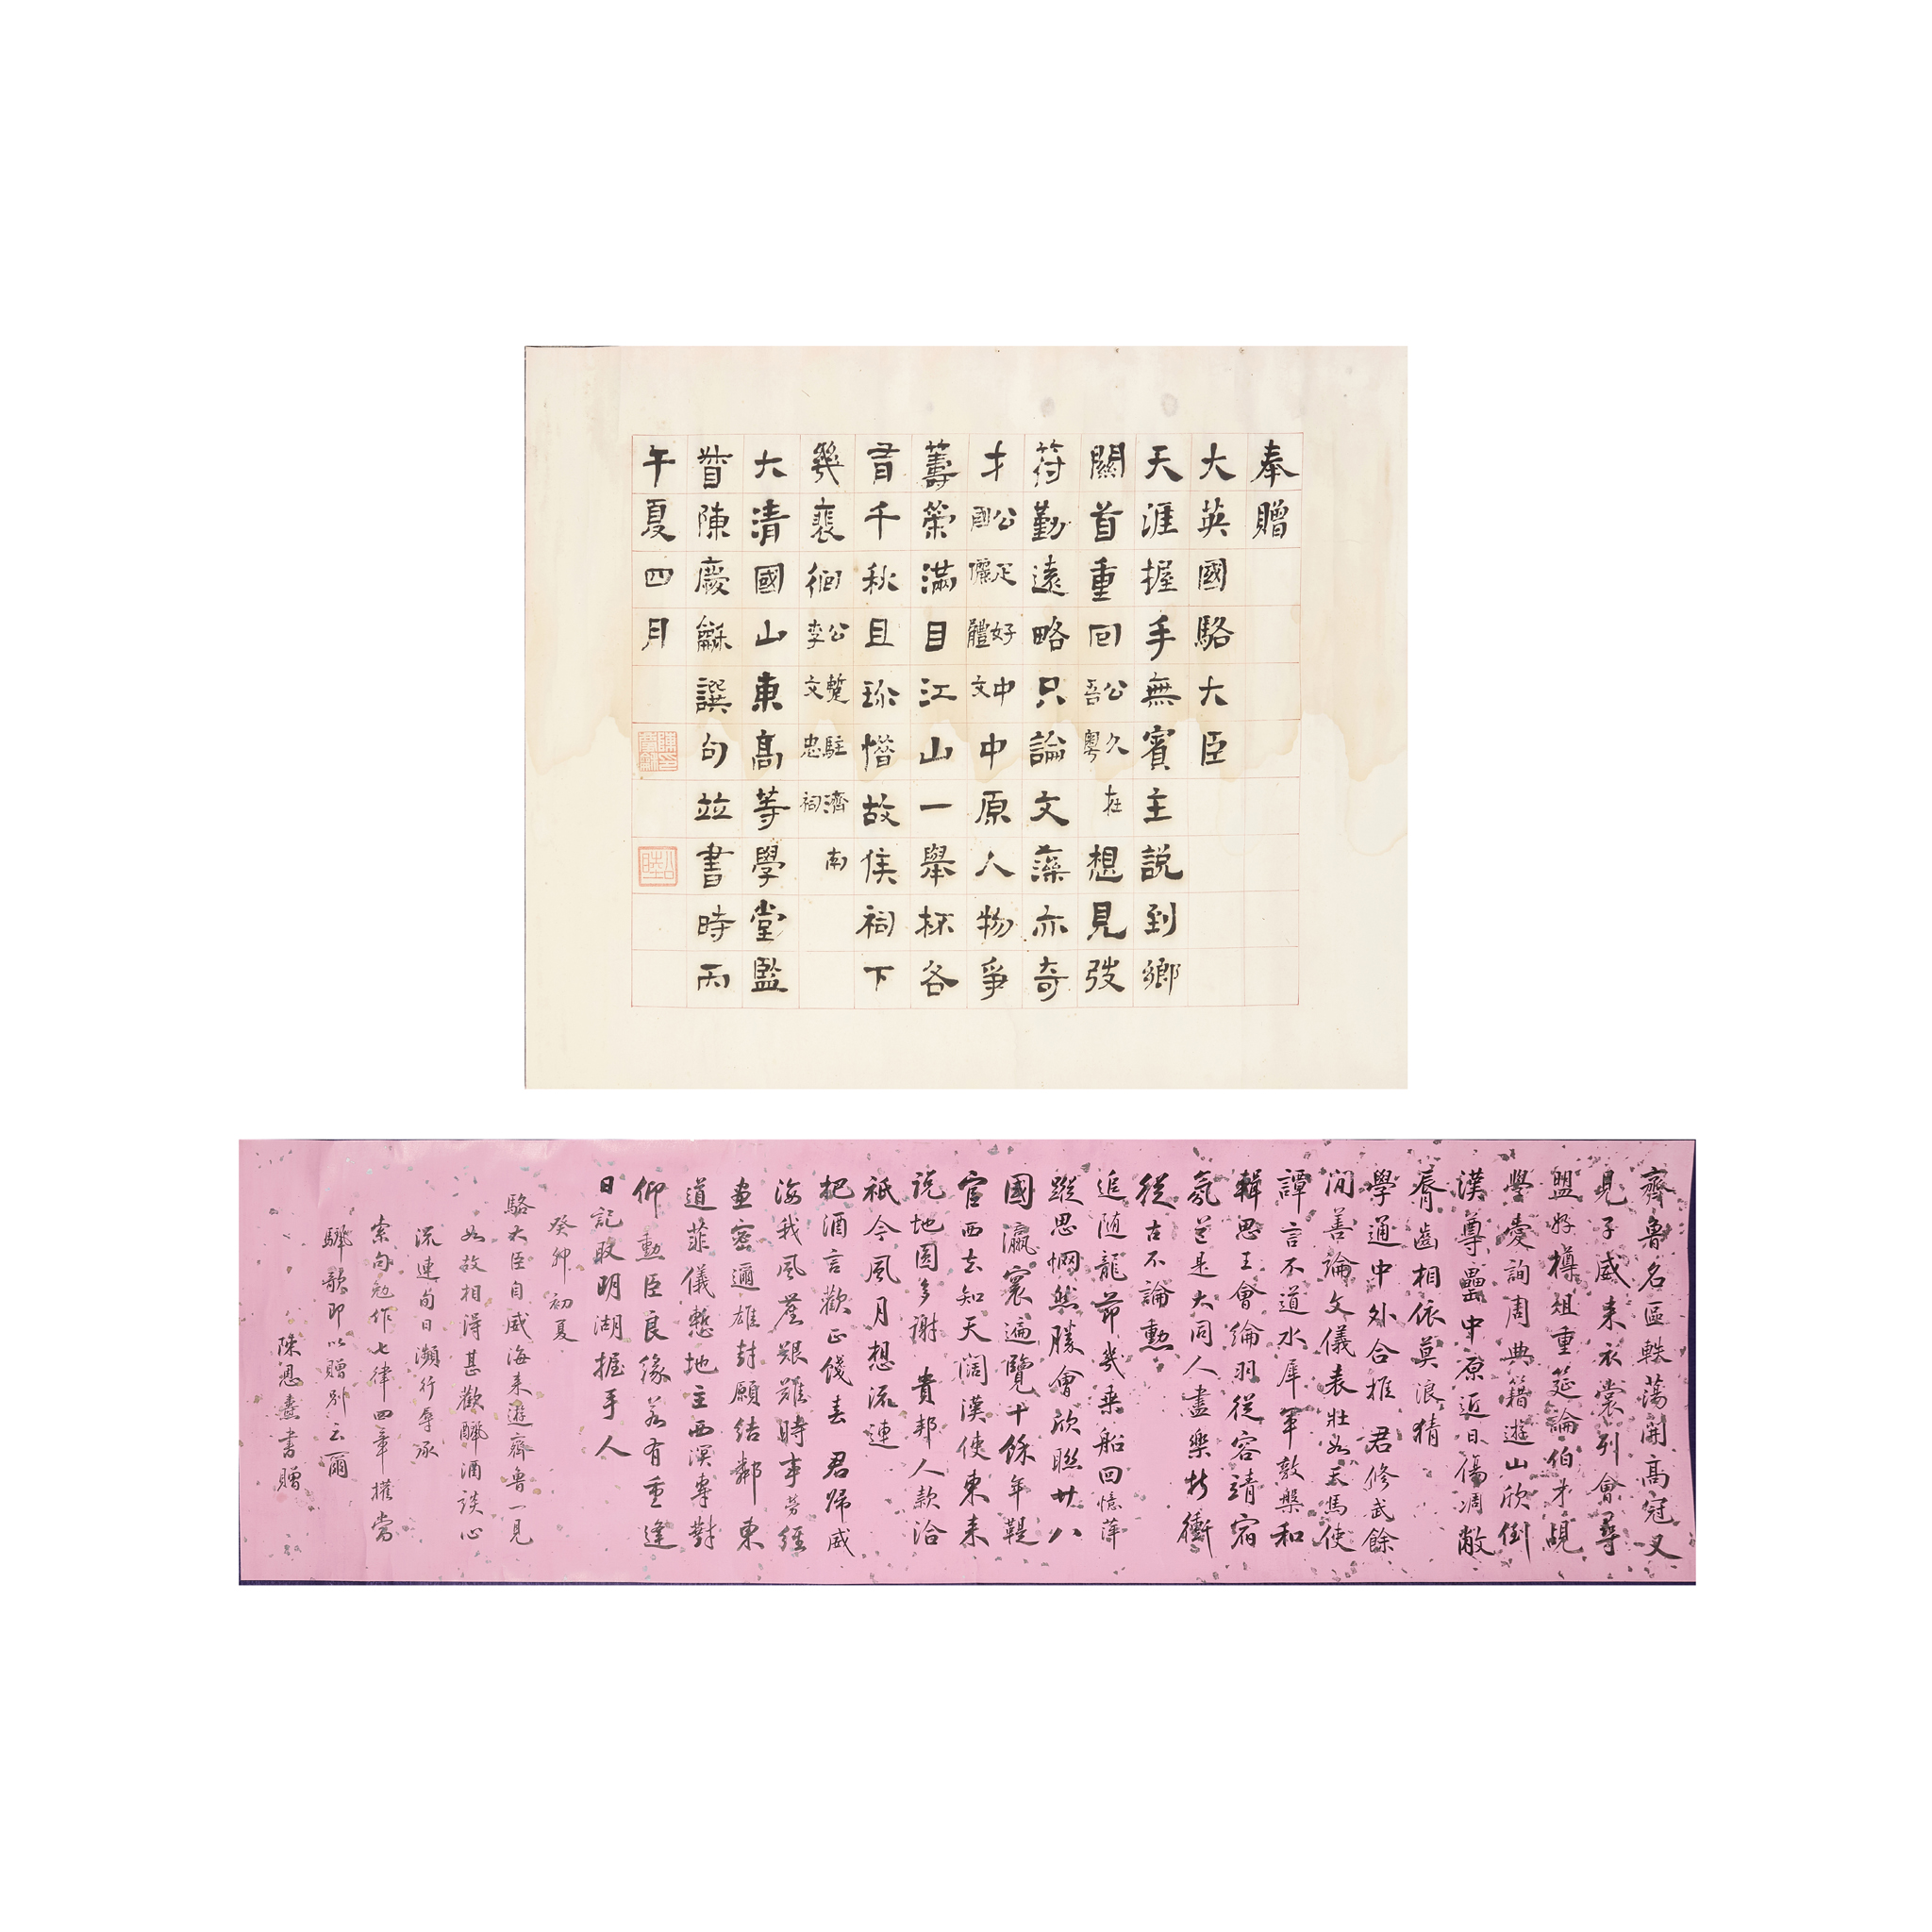 奉贈
大英國駱大臣
天涯握手無賓主說到鄉
關首重回公久在吾粵想見弢
符勤遠略只論文藻亦奇
才公足好中國儷體文中原人物爭
籌策滿目江山一舉杯各
有千秋且珍惜故侯祠下
幾裵徊公蹔駐濟南李文忠祠
大清國山東高等學堂監
督陳慶龢譔句並書時丙
午夏四月
齊魯名區軼蕩開高冠又
見子威来衣裳列會尋
盟好樽俎重筵論伯才覘
學爰詢周典籍遊山欣倒
漢尊罍中原近日傷凋敝
脣齒相依莫浪猜
學通中外合推君修武餘
閒善論文儀表壯如天馬使
譚言不道水犀軍敦槃和
輯思王會綸羽從容靖宿
氛芒是大同人盡樂折衝
從古不論勲
追隨龍節幾乘船回憶萍
蹤思惘然勝會欣聯廿八
國瀛寰遍覽十餘年鞮
官西去知天闊漢使東来
說地圓多謝貴邦人款洽
祇今風月想流連
把酒言歡正餞春君歸威
海我風塵艱難時事勞經
畫密邇雄封願結鄰東
道菲儀慙地主西溟專對
仰勳臣良緣若有重逢
日記取明湖握手人
癸卯初夏
駱大臣自威海来遊齊魯一見
如故相得甚歡酾酒談心
流連旬日瀕行辱承
索句勉作七律四章權當
驪歌即以贈別云爾
陳恩燾書贈